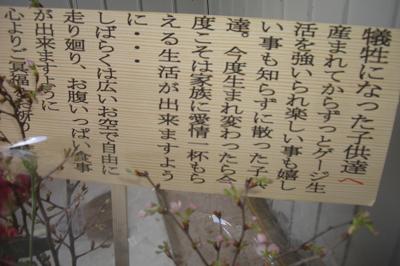 犠牲になった子供達へ
産まれてからずっとゲージ生
活を強いられ楽しい事も嬉し
い事も知らずに散った子
達。今度生まれ変わったら今
度こそは家族に愛情一杯もら
える生活が出来ますよう
に・・・
しばらくは広いお空で自由に
走り廻り、お腹いっぱい食事
が出来ますように
心よりご冥福をお祈